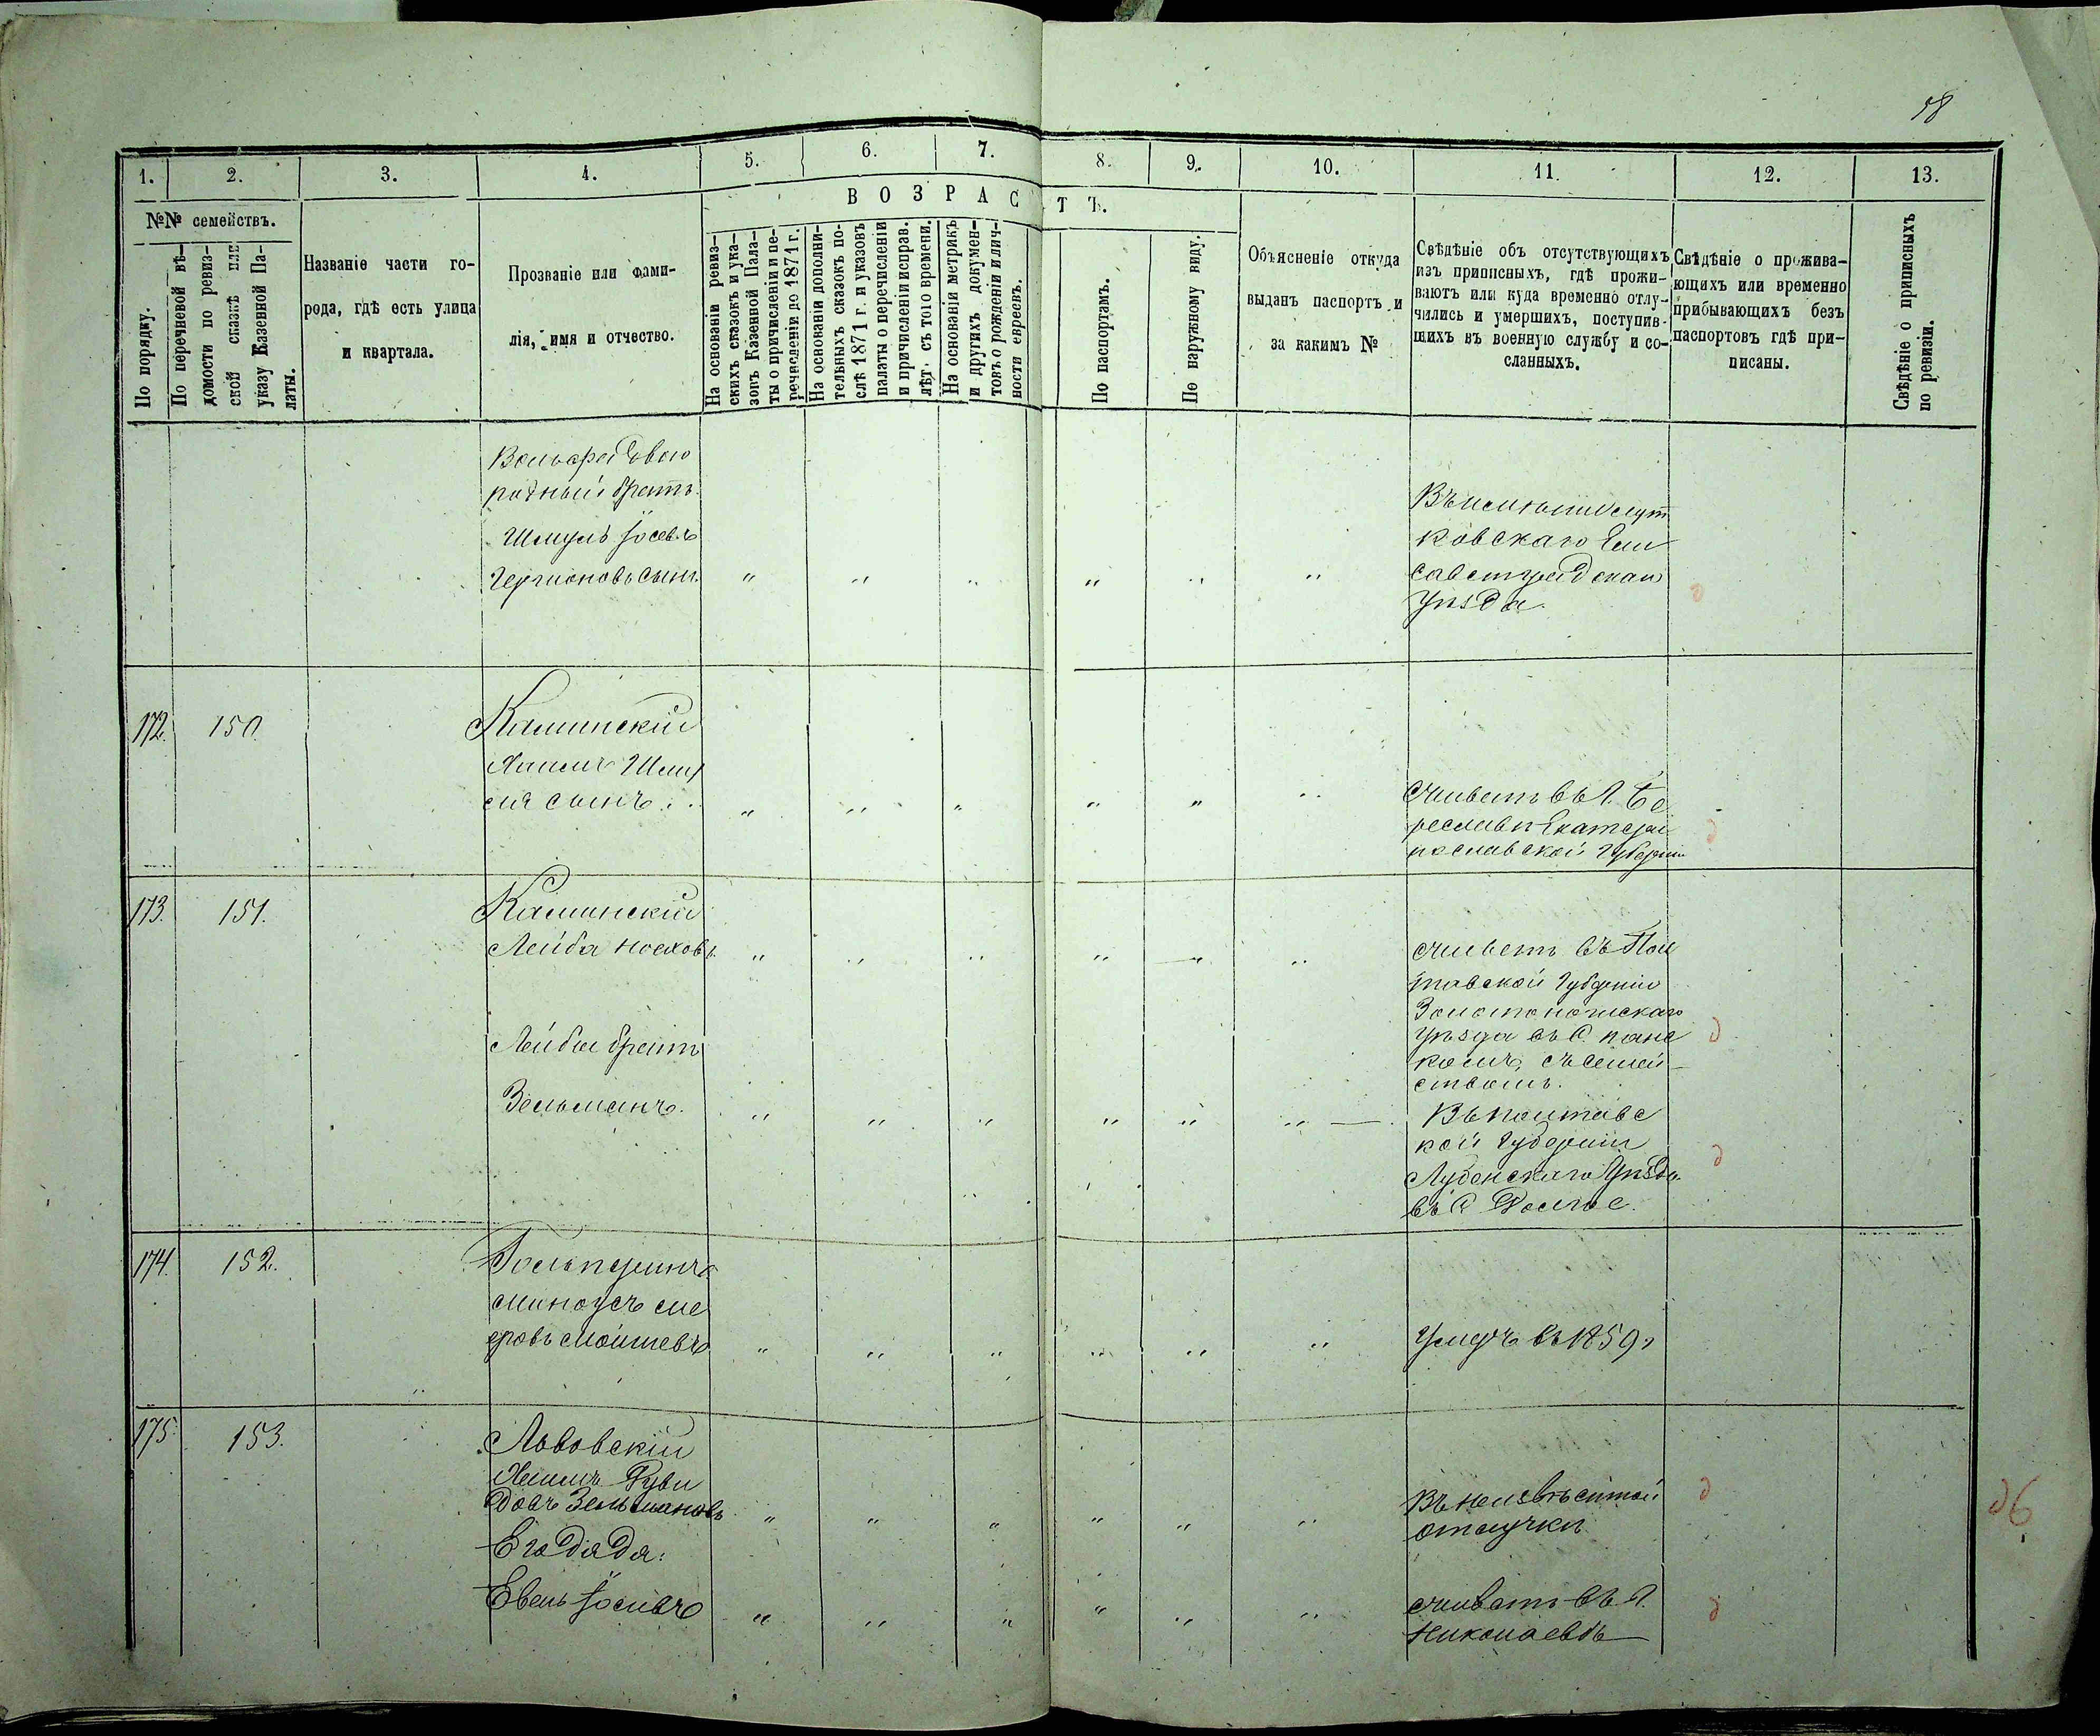 58
1. 2. 3. 4. 5. 6. 7. 8. 9. 10. 11. 12. 13.
№№ семействъ.
По порядку.
По перечневой вѣ-
домости по ревиз-
ской сказкѣ или
указу Казенной Па-
латы.
Названіе части го-
рода, гдѣ есть улица
и квартала.
Прозваніе или фами-
лія, имя и отчество.
ВОЗРАСТЪ.
На основаніи ревиз-
скихъ сказокъ и ука-
зовъ Казенной Пала-
ты о причисленіи и пе-
речисленіи до 1871 г.
На основаніи дополни-
тельныхъ сказокъ по-
слѣ 1871 г. и указовъ
палаты о перечисленіи
и причисленіи исправ.
лѣт. съ того времени.
На основаніи метрикъ
и другихъ докумен-
товъ о рожденіи и лич-
ности евреевъ.
По паспортамъ.
По наружному виду.
Объясненіе откуда
выданъ паспортъ и
за какимъ №
Свѣдѣніе объ отсутствующихъ
изъ приписныхъ, гдѣ прожи-
ваютъ или куда временно отлу-
чились и умершихъ, поступив-
шихъ въ военную службу и со-
сланныхъ.
Свѣдѣніе о прожива-
ющихъ или временно
прибывающихъ безъ
паспортовъ гдѣ при-
писаны.
Свѣдѣніе о приписныхъ
по ревизіи.
родный братъ
Шмуль Іосевъ
Гершоновъ сынъ
ковскаго Ели
саветградскаго
уѣзда.
172. 150.
Каминскій
Хаимъ Шму
ля сынъ
Живетъ въ Г. Бе
реславѣ Екатери
нославской Губерніи
173. 151.
Каминскій
Лейба Ноеховъ
Живетъ въ Пол
тавской Губерніи
Золотоношскаго
уѣзда въ С. панс
комъ, съ семей
ствомъ.
Лейбы братъ
Зельманъ.
Въ Полтавс
кой Губерніи
Лубенскаго Уѣзда
въ С.
174. 152.
Гольперинъ
Миноусъ Ме
еровъ Мойшевъ
Умеръ въ 1859 г
175. 153.
Львовскій
Хаимъ Руви
новъ Зельмановъ
Въ неизвѣстной
отлучкѣ
Его дядя:
Евель Іосивъ
Живетъ въ Г.
Николаевѣ